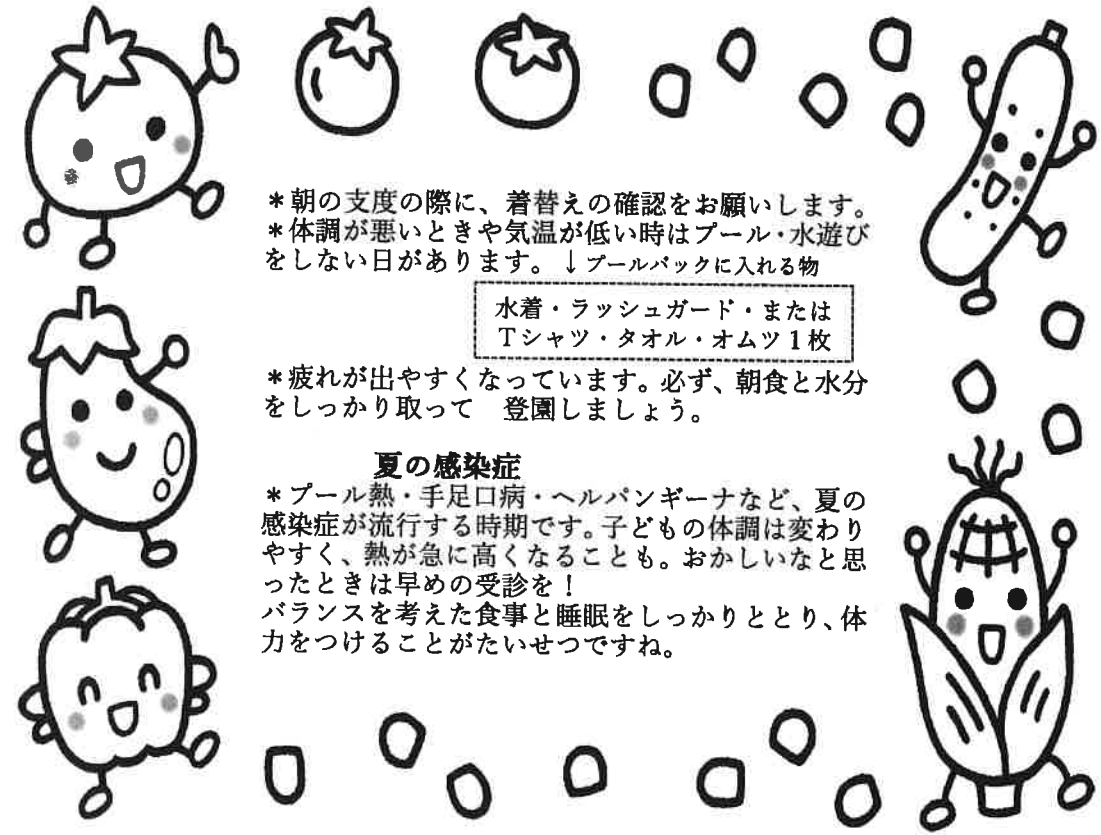 ＊朝の支度の際に、着替えの確認をお願いします。
＊体調が悪いときや気温が低い時はプール・水遊び
をしない日があります。↓プールバックに入れる物
水着・ラッシュガード・または
Tシャツ・タオル・オムツ1枚
＊疲れが出やすくなっています。必ず、朝食と水分
をしっかり取って　登園しましょう。
夏の感染症
＊プール熱・手足口病・ヘルパンギーナなど、夏の
感染症が流行する時期です。子どもの体調は変わり
やすく、熱が急に高くなることも。おかしいなと思
ったときは早めの受診を！
バランスを考えた食事と睡眠をしっかりととり、体
力をつけることがたいせつですね。